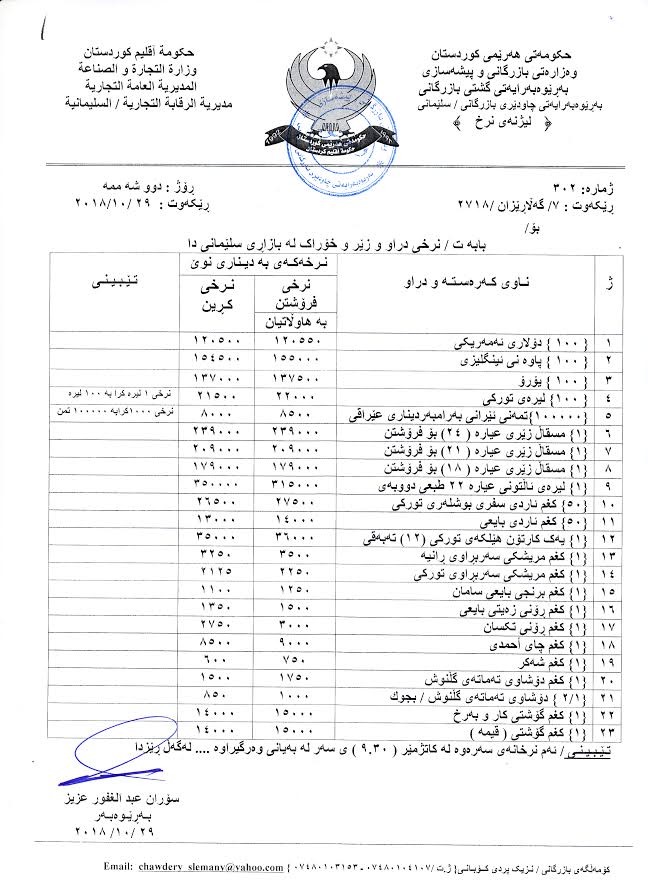 حکومەتی هەرێمی کوردستان
وەزارەتی بازرگانی و پیشەسازی
بەڕێوەبەرایەتی گشتی بازرگانی
بەڕێوەبەرایەتی چاودێری بازرگانی / سلێمانی
﴿ لیژنەی نرخ ﴾
حكومة أقليم كوردستان
وزارة التجارة و الصناعة
المديرية العامة التجارية
مديرية الرقابة التجارية / السليمانية
حکومەتی هەرێمی کوردستان
حكومة أقليم كردستان
ژمارە: ٣٠٢
ڕێکەوت: ٧/ گەڵارێزان /٢٧١٨
ڕۆژ : دوو شە ممە
ڕێکەوت : ٢٩ /١٠/ ٢٠١٨
بۆ/
بابە ت / نرخی دراو و زێر و خۆراک لە بازاڕی سلێمانی دا
ژ ناوی کەرەستە و دراو نرخەکەی بە دیناری نوێ تێبینی
نرخی فرۆشتن بە هاوڵاتیان نرخی کڕین
١ { ١٠٠ } دۆلاری ئەمەریکی ١٢٠٥٥٠ ١٢٠٥٠٠
٢ { ١٠٠ } پاوە نی ئینگلیزی ١٥٥٠٠٠ ١٥٤٥٠٠
٣ { ١٠٠ } یۆرۆ ١٣٧٥٠٠ ١٣٧٠٠٠
٤ { ١٠٠ } لیرەی تورکی ٢٢٠٠٠ ٢١٥٠٠ نرخی ١ لیرە کرا بە ١٠٠ لیرە
٥ {١٠٠٠٠٠}تمەنی ئێرانی بەرامبەردیناری عێراقی ٨٥٠٠ ٨٠٠٠ نرخی ١٠٠٠کرابە ١٠٠٠٠٠ تمن
٦ {١} مسقاڵ زێری عیارە ( ٢٤ ) بۆ فرۆشتن ٢٣٩٠٠٠ ٢٣٩٠٠٠
٧ {١} مسقاڵ زێری عیارە ( ٢١ ) بۆ فرۆشتن ٢٠٩٠٠٠ ٢٠٩٠٠٠
٨ {١} مسقاڵ زێری عیارە ( ١٨ ) بۆ فرۆشتن ١٧٩٠٠٠ ١٧٩٠٠٠
٩ {١} لیرەی ئاڵتونی عیارە ٢٢ طبعی دووبەی ٣١٥٠٠٠ ٣٥٠٠٠٠
١٠ {٥٠} کغم ئاردی سفری بوشلەری تورکی ٢٧٥٠٠ ٢٦٥٠٠
١١ {٥٠} کغم ئاردی بایعی ١٤٠٠٠ ١٣٠٠٠
١٢ {١} یەک کارتۆن هێلکەی تورکی (١٢) تەبەقی ٣٦٠٠٠ ٣٥٠٠٠
١٣ {١} کغم مریشکی سەربڕاوی ڕانیە ٣٥٠٠ ٣٢٥٠
١٤ {١} کغم مریشکی سەربڕاوی تورکی ٢٢٥٠ ٢١٢٥
١٥ {١} کغم برنجی بایعی سامان ١٢٥٠ ١١٠٠
١٦ {١} کغم ڕۆنی زەیتی بایعی ١٥٠٠ ١٣٥٠
١٧ {١} کغم ڕۆنی تکسان ٣٠٠٠ ٢٧٥٠
١٨ {١} کغم چای أحمدی ٩٠٠٠ ٨٥٠٠
١٩ {١} کغم شەکر ٧٥٠ ٦٠٠
٢٠ {١} کغم دۆشاوی تەماتەی گڵنوش ١٧٥٠ ١٥٠٠
٢١ {٢/١ } دۆشاوی تەماتەی گڵنوش / بچوك ١٠٠٠ ٨٥٠
٢٢ {١} کغم گۆشتی کار و بەرخ ١٥٠٠٠ ١٤٠٠٠
٢٣ {١} کغم گۆشتی ( قیمە ) ١٥٠٠٠ ١٤٠٠٠
تێبینی/ ئەم نرخانەی سەرەوە لە کاتژمێر ( ٩.٣٠ ) ی سەر لە بەیانی وەرگیراوە .... لەگەڵ ڕێزدا
سۆران عبد الغفور عزیز
بەڕێوەبەر
٢٩ /١٠ /٢٠١٨
کۆمەڵگەی بازرگانی / نزیک پردی کۆبانی{ ژ.ت /٠٧٤٨٠١٠٤١٠٧ - ٠٧٤٨٠١٠٣١٥٣ } Email: chawdery_slemany@yahoo.com